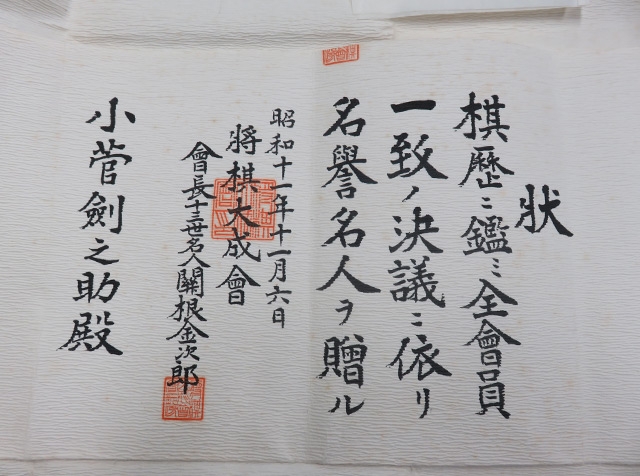 狀
棋歷ニ鑑ミ全會員
一致ノ決議ニ依リ
名譽名人ヲ贈ル
昭和十一年十一月六日
將棋大成會
會長十三世名人關根金次郎
小菅劍之助殿